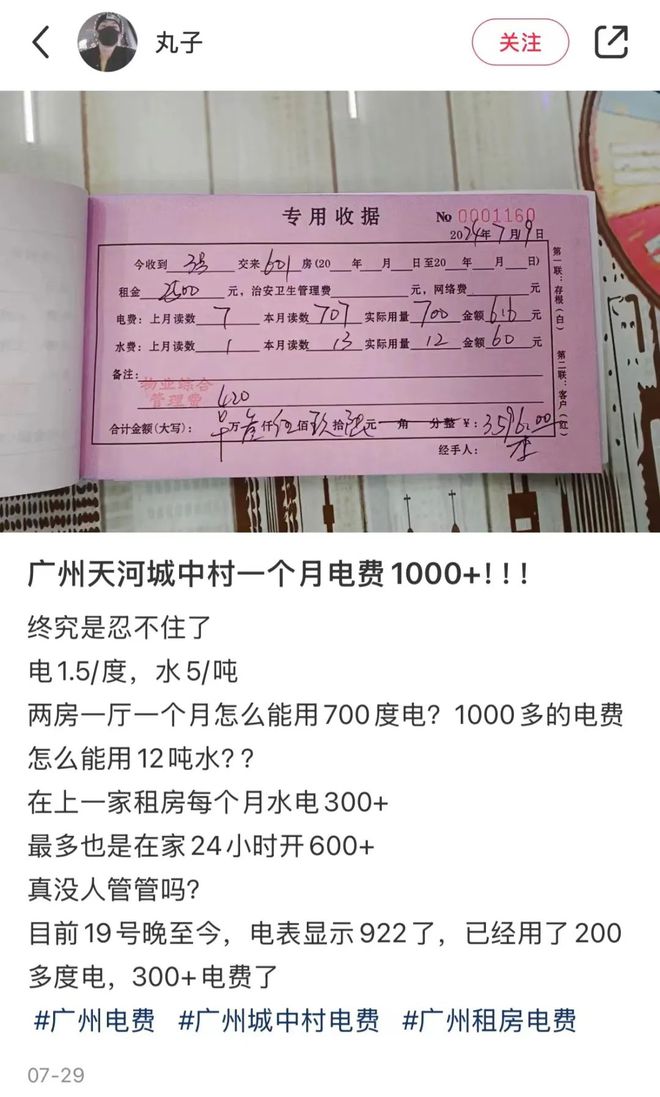 丸子
关注
专用收据
No 0001160
2024年7月19日
今收到 3号 交来601房(20 年 月 日至20 年 月 日)
租金2500元,治安卫生管理费 元,网络费 元
电费:上月读数 7 本月读数 707 实际用量 700 金额 616 元
水费:上月读数 1 本月读数 13 实际用量 12 金额 60 元
备注:
物业综合
管理费 420
合计金额(大写): 万叁仟伍佰玖拾陆元 角 分整 ¥:3596.00
经手人:李
第一联:存根(白)
第二联:客户(红)
广州天河城中村一个月电费1000+!!!
终究是忍不住了
电1.5/度,水5/吨
两房一厅一个月怎么能用700度电?1000多的电费
怎么能用12吨水??
在上一家租房每个月水电300+
最多也是在家24小时开600+
真没人管管吗?
目前19号晚至今,电表显示922了,已经用了200
多度电,300+电费了
#广州电费 #广州城中村电费 #广州租房电费
07-29